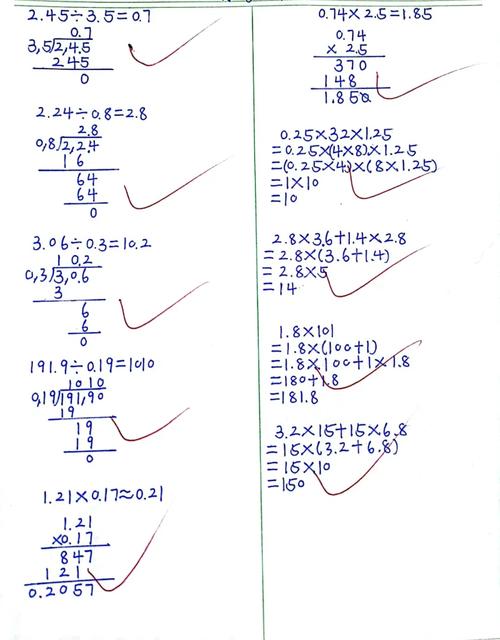 2.45÷3.5=0.7
0.7
3,5)2,4.5
245
0
2.24÷0.8=2.8
2.8
0,8)2,2.4
16
64
64
0
3.06÷0.3=10.2
10.2
0,3)3,0.6
3
6
6
0
191.9÷0.19=1010
1010
0,19)191,90
19
19
19
0
1.21×0.17≈0.21
1.21
×0.17
847
121
0.2057
0.74×2.5=1.85
0.74
×2.5
370
148
1.850
0.25×32×1.25
=0.25×(4×8)×1.25
=(0.25×4)×(8×1.25)
=1×10
=10
2.8×3.6+1.4×2.8
=2.8×(3.6+1.4)
=2.8×5
=14
1.8×101
=1.8×(100+1)
=1.8×100+1×1.8
=180+1.8
=181.8
3.2×15+15×6.8
=15×(3.2+6.8)
=15×10
=150